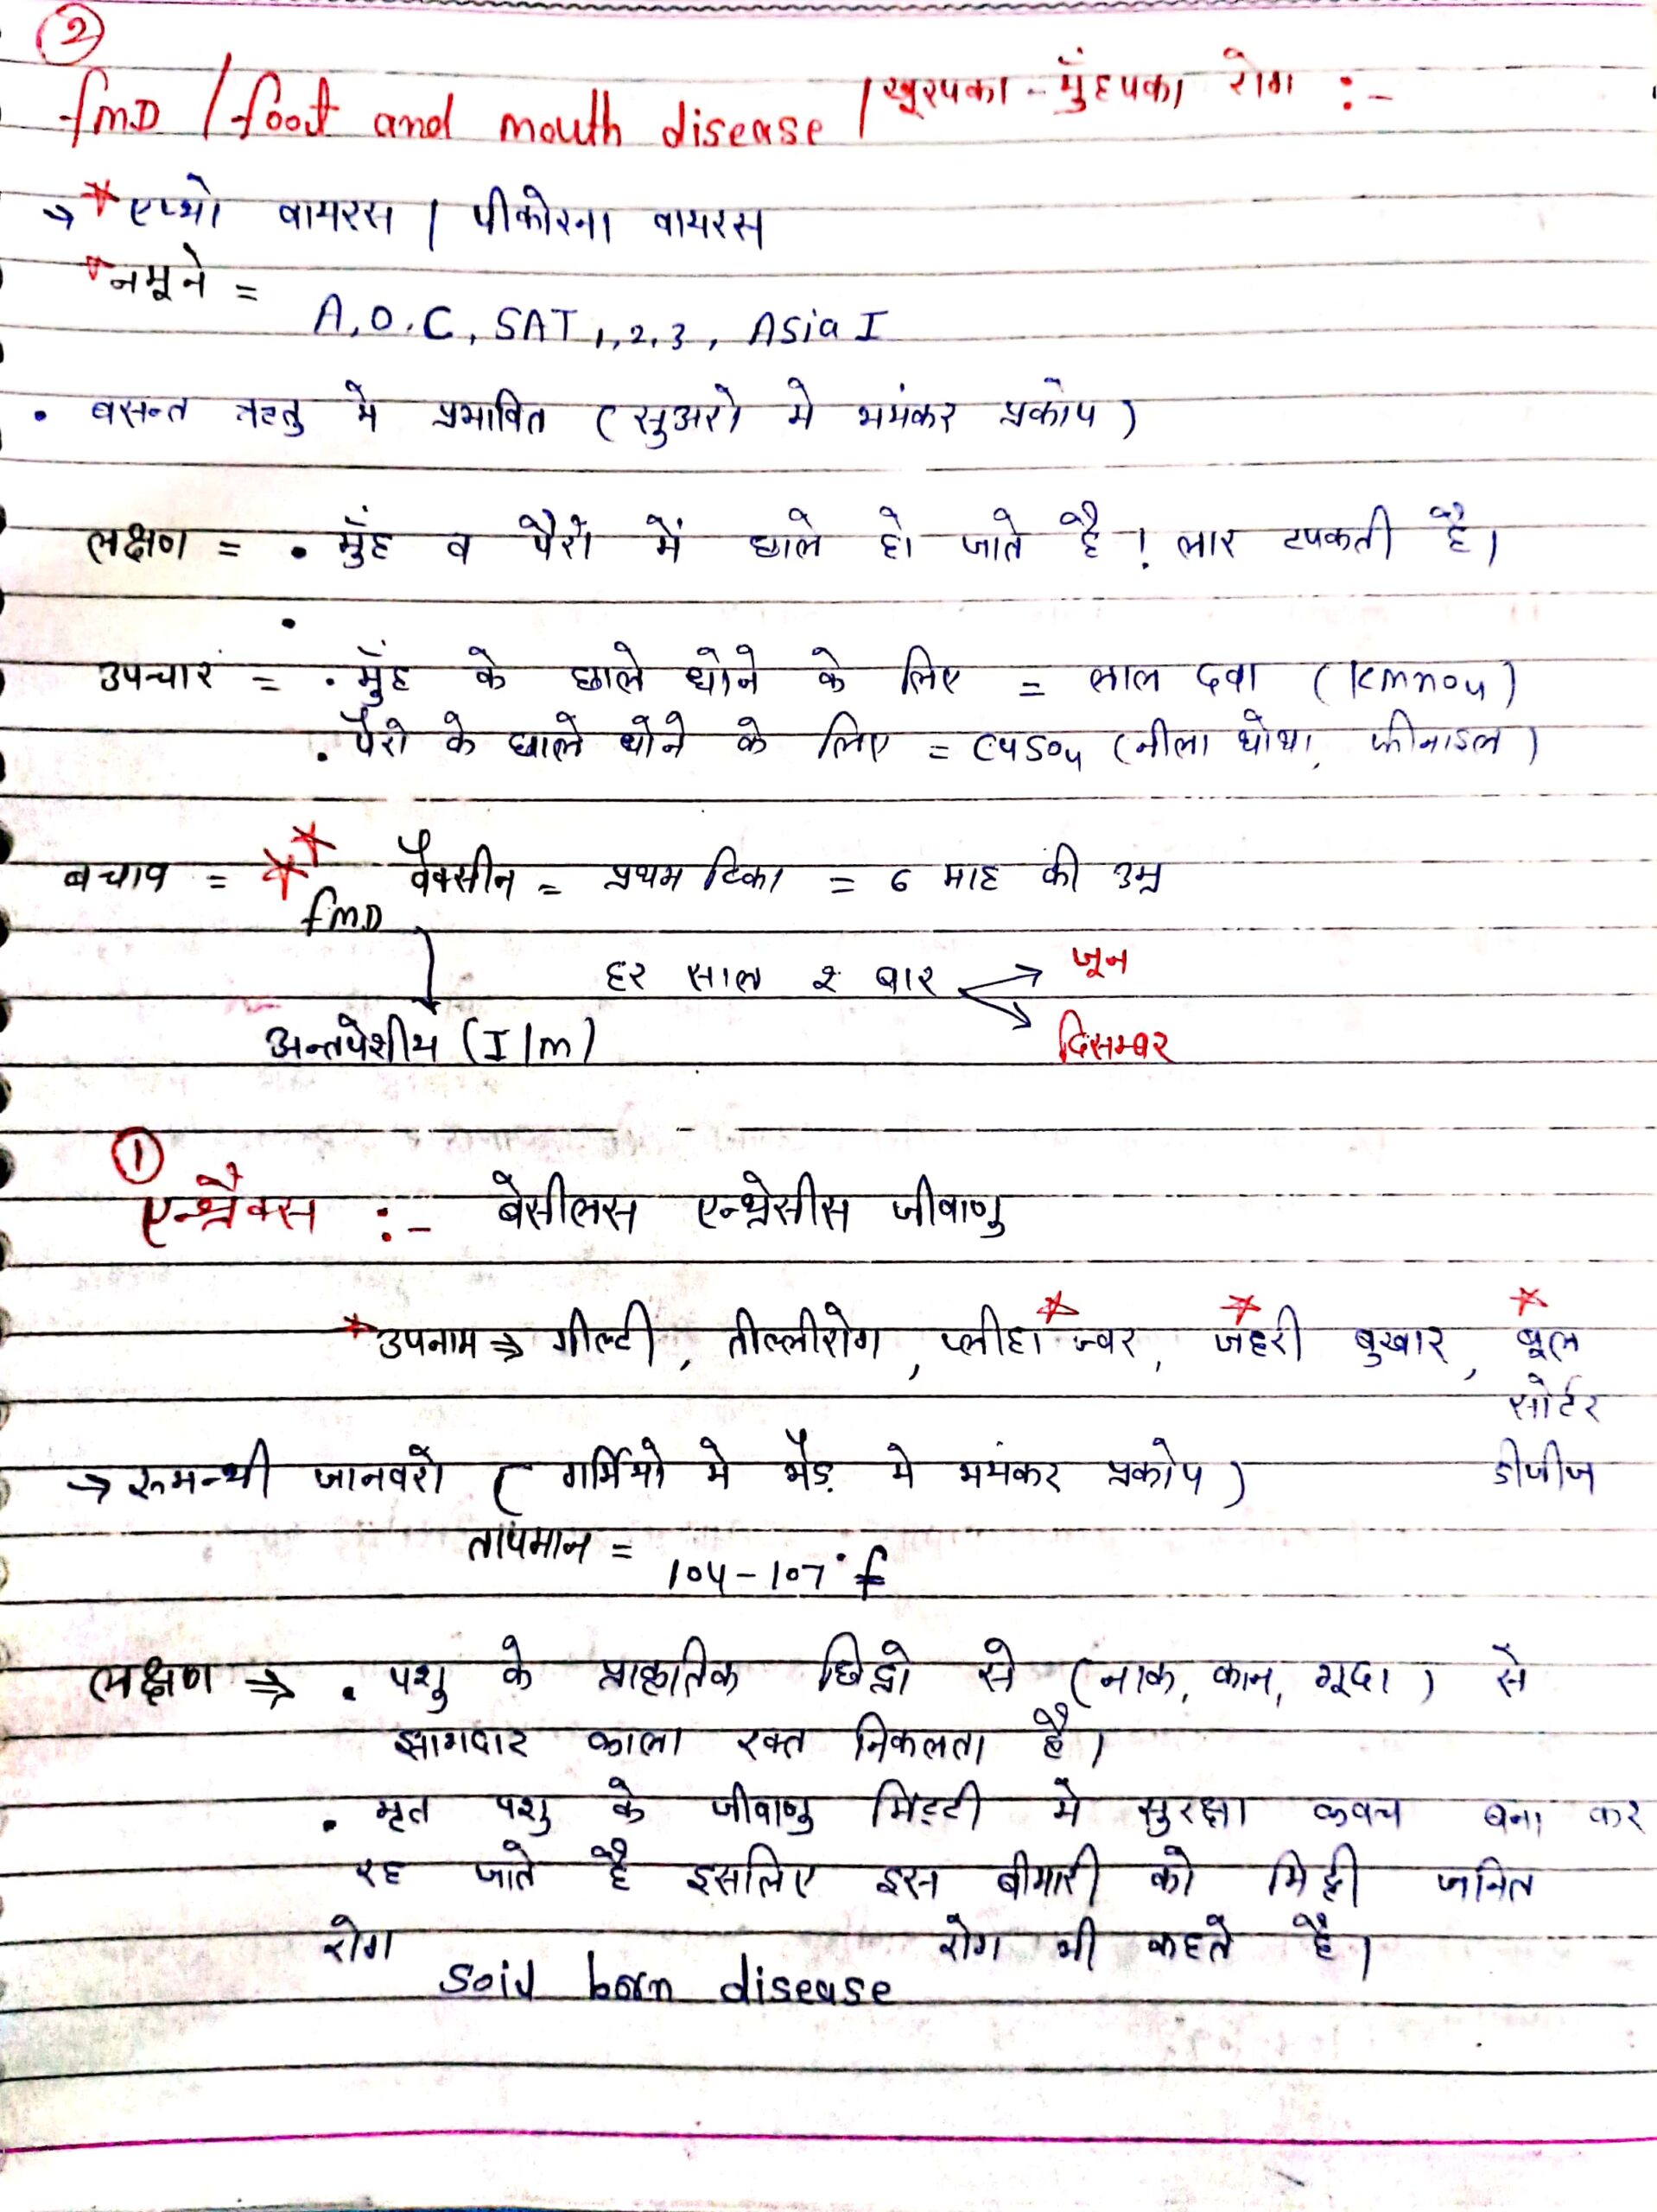 ②
FMD / foost and mouth disease / खूरपका - मुँहपका रोग :-
→ * एप्थो वायरस / पीकोरना वायरस
* नमूने =
A, O, C, SAT 1, 2, 3, Asia I
• बसन्त ऋतु मे प्रभावित (सुअरो मे भयंकर प्रकोप)
लक्षण = • मुँह व पैरों में छाले हो जाते है ! लार टपकती है।
•
उपचार = • मुँह के छाले धोने के लिए = लाल दवा (kmno4)
• पैरो के छाले धोने के लिए = CuSo4 (नीला थोथा, फीनाइल)
बचाव = ** वैक्सीन = प्रथम टिका = 6 माह की उम्र
FMD
हर साल 2 बार → जून
अन्तपेशीय (I/m) → दिसम्बर
①
एन्थ्रैक्स :- बेसीलस एन्थ्रेसीस जीवाणु
* उपनाम ⇒ गील्टी, तील्लीरोग, प्लीहा ज्वर, जहरी बुखार, बूल
सोर्टर
→ रूमन्थी जानवरो ( गर्मियो मे भैड़ मे भयंकर प्रकोप) डीजीज
तापमान =
104-107°f
लक्षण ⇒ • पशु के प्राकृतिक छिद्रो से (नाक, कान, गूदा) से
झागदार काला रक्त निकलता है।
• मृत पशु के जीवाणु मिट्टी मे सुरक्षा कवच बना कर
रह जाते है इसलिए इस बीमारी को मिट्टी जनित
रोग रोग भी कहते है।
soil born disease